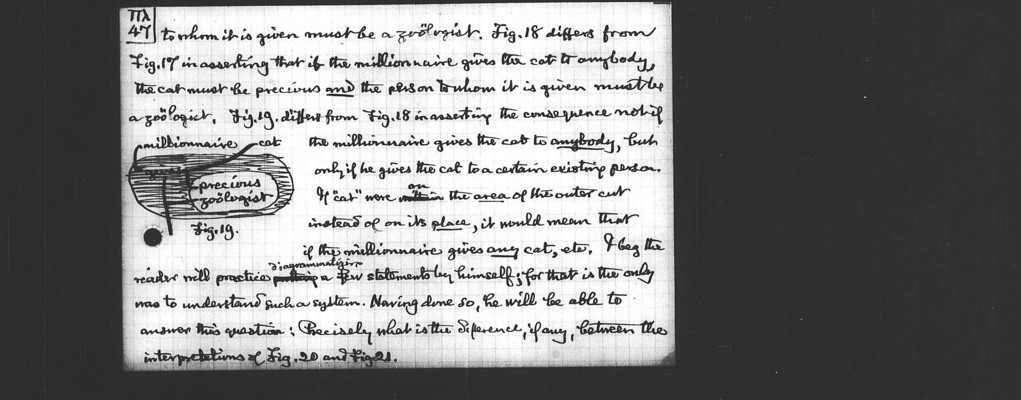 ΠΛ
47
to whom it is given must be a zoölogist. Fig. 18 differs from
Fig. 17 in asserting that if the millionnaire gives the cat to anybody,
the cat must be precious and the person to whom it is given must be
a zoölogist. Fig. 19. differs from Fig. 18 in asserting the consequence not if
the millionnaire gives the cat to anybody, but
only if he gives the cat to a certain existing person.
If "cat" were on the area of the outer cut
instead of on its place, it would mean that
if the millionnaire gives any cat, etc. I beg the
millionnaire cat
gives
precious
zoölogist
Fig. 19.
reader will practice diagrammatizing a few statements by himself; for that is the only
way to understand such a system. Having done so, he will be able to
answer this question: Precisely what is the difference, if any, between the
interpretations of Fig. 20 and Fig 21.